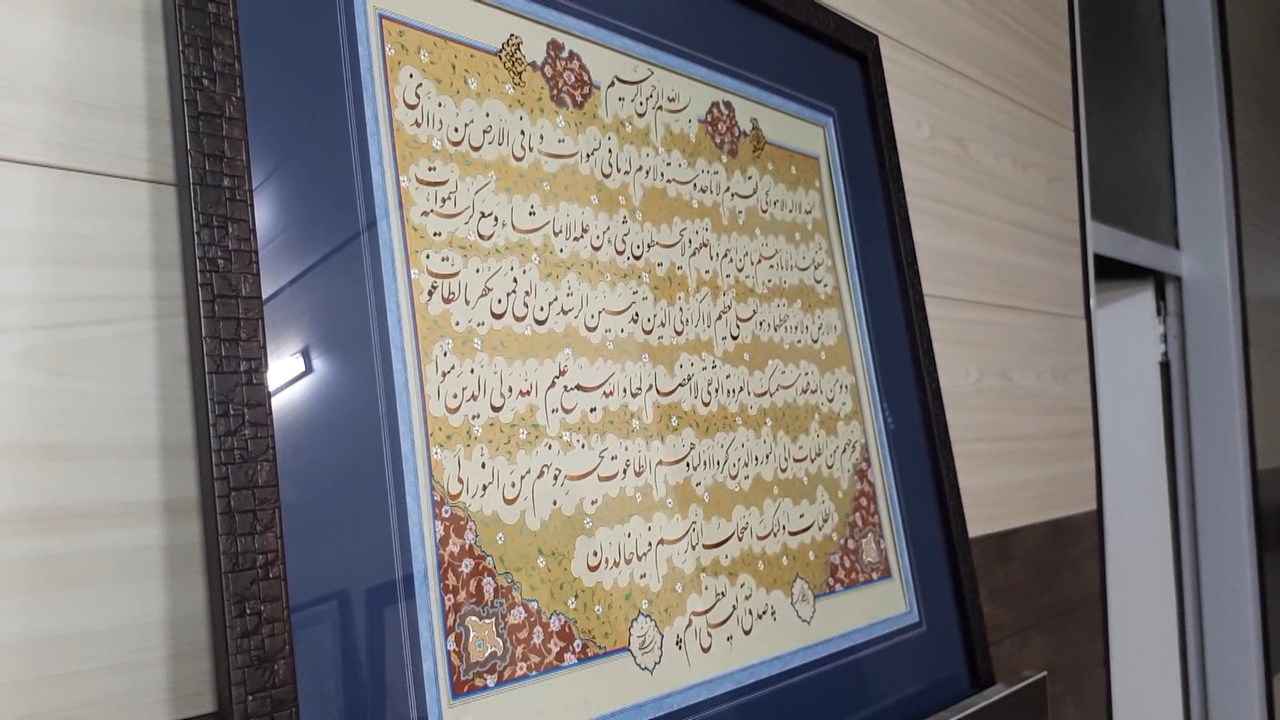 بسم الله الرحمن الرحیم
الله لا اله الا هو الحی القیوم لا تاخذه سنة ولا نوم له ما فی السموات و ما فی الارض من ذا الذی
یشفع عنده الا باذنه یعلم ما بین ایدیهم و ما خلفهم ولا یحیطون بشیء من علمه الا بما شاء وسع کرسیه السموات
والارض ولا یوده حفظهما و هو العلی العظیم لا اکراه فی الدین قد تبین الرشد من الغی فمن یکفر بالطاغوت
و یومن بالله فقد استمسک بالعروة الوثقی لا انفصام لها والله سمیع علیم الله ولی الذین آمنوا
یخرجهم من الظلمات الی النور والذین کفروا اولیاوهم الطاغوت یخرجونهم من النور الی
الظلمات اولئک اصحاب النار هم فیها خالدون
صدق الله العلی العظیم